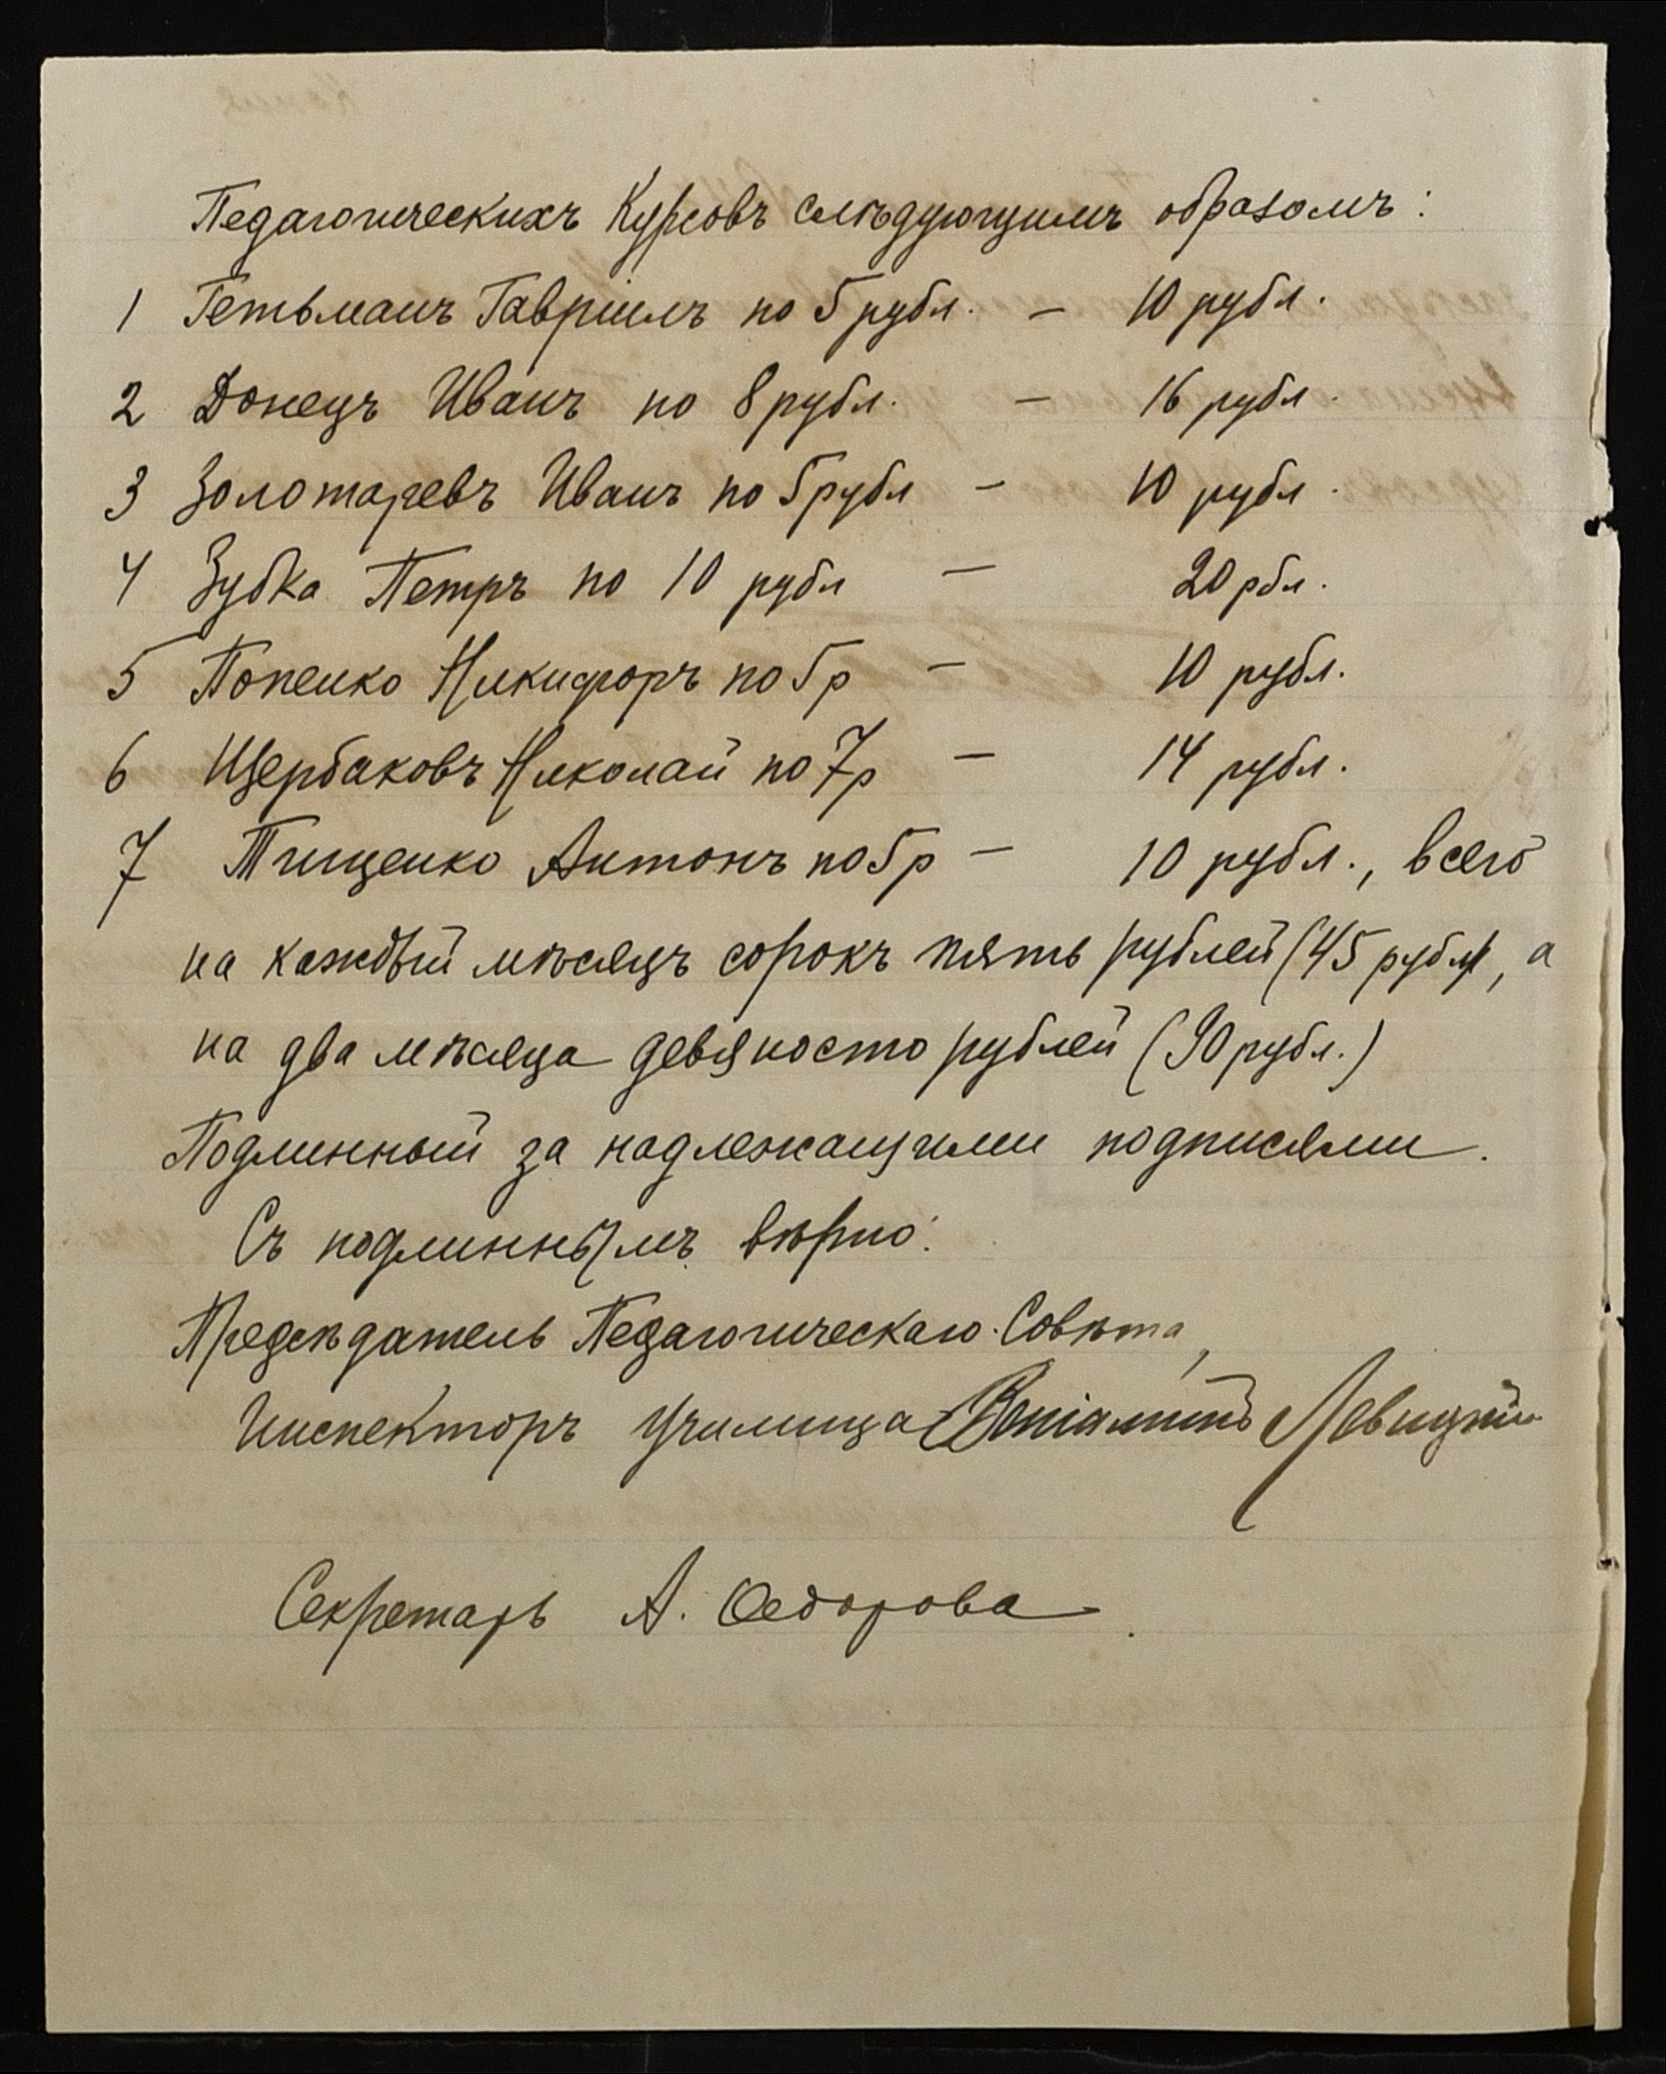 Педагогическихъ Курсовъ слѣдующимъ образомъ:
1 Гетьманъ Гавріилъ по 5 рубл. — 10 рубл.
2 Донецъ Иванъ по 8 рубл. — 16 рубл.
3 Золотаревъ Иванъ по 5 рубл — 10 рубл.
4 Зубка Петръ по 10 рубл — 20 рбл.
5 Попенко Никифоръ по 5 р — 10 рубл.
6 Щербаковъ Николай по 7 р — 14 рубл.
7 Тищенко Антонъ по 5 р — 10 рубл., всего
на каждый мѣсяцъ сорокъ пять рублей (45 рубл), а
на два мѣсяца девяносто рублей (90 рубл.)
Подлинный за надлежащими подписями.
Съ подлиннымъ вѣрно:
Предсѣдатель Педагогическаго Совѣта,
Инспекторъ Училища Веніаминъ Левицкій
Секретарь А. Ѳедорова.